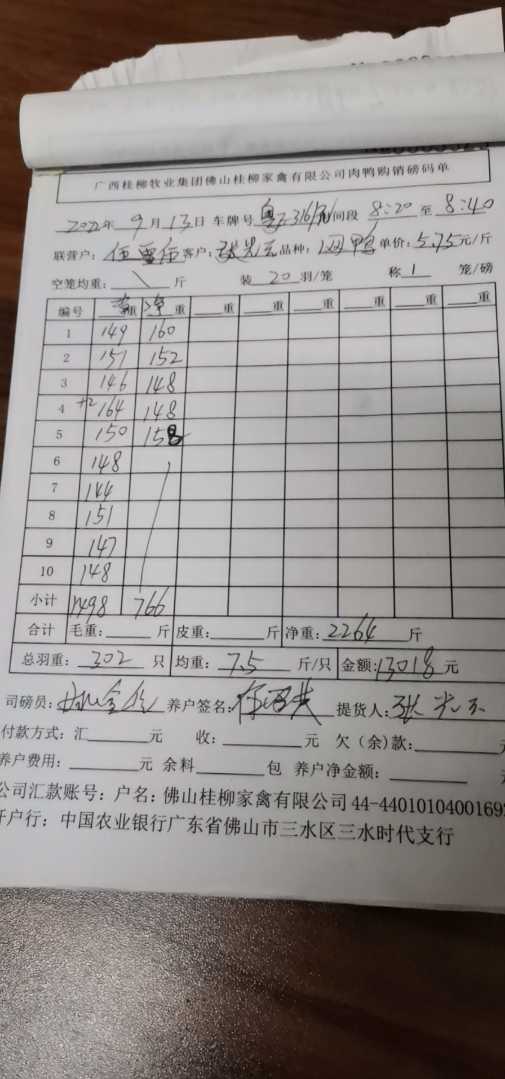 广西桂柳牧业集团佛山桂柳家禽有限公司肉鸭购销磅码单
2022年 9月 13日 车牌号 时间段 8:20 至 8:40
联营户: 客户: 品种: 鸭 单价: 5.75元/斤
空笼均重: \ 斤 装 20 羽/笼 称 1 笼/磅
编号 净重 净重 重 重 重 重 重
1 149 160
2 151 152
3 146 148
4 +2 164 148
5 150 158
6 148
7 144
8 151
9 147
10 148
小计 1498 766
合计 毛重: 斤 皮重: 斤 净重: 2264 斤
总羽重: 302 只 均重: 7.5 斤/只 金额: 13018 元
司磅员: 养户签名: 提货人: 张
付款方式: 汇 元 收: 元 欠(余)款:
养户费用: 元 余料 包 养户净金额:
公司汇款账号: 户名: 佛山桂柳家禽有限公司 44-4401010400169
开户行: 中国农业银行广东省佛山市三水区三水时代支行